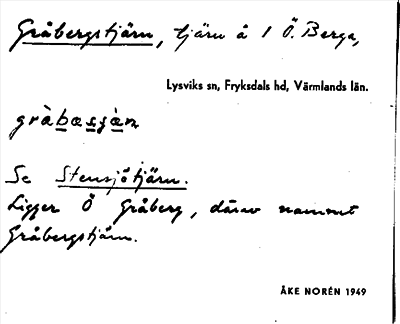 Gråbergstjärn, tjärn å 1 Ö. Berga,
Lysviks sn, Fryksdals hd, Värmlands län.
gràbasjàn
Se Stensjötjärn.
Ligger Ö Gråberg, därav namnet
Gråbergstjärn.
ÅKE NORÉN 1949